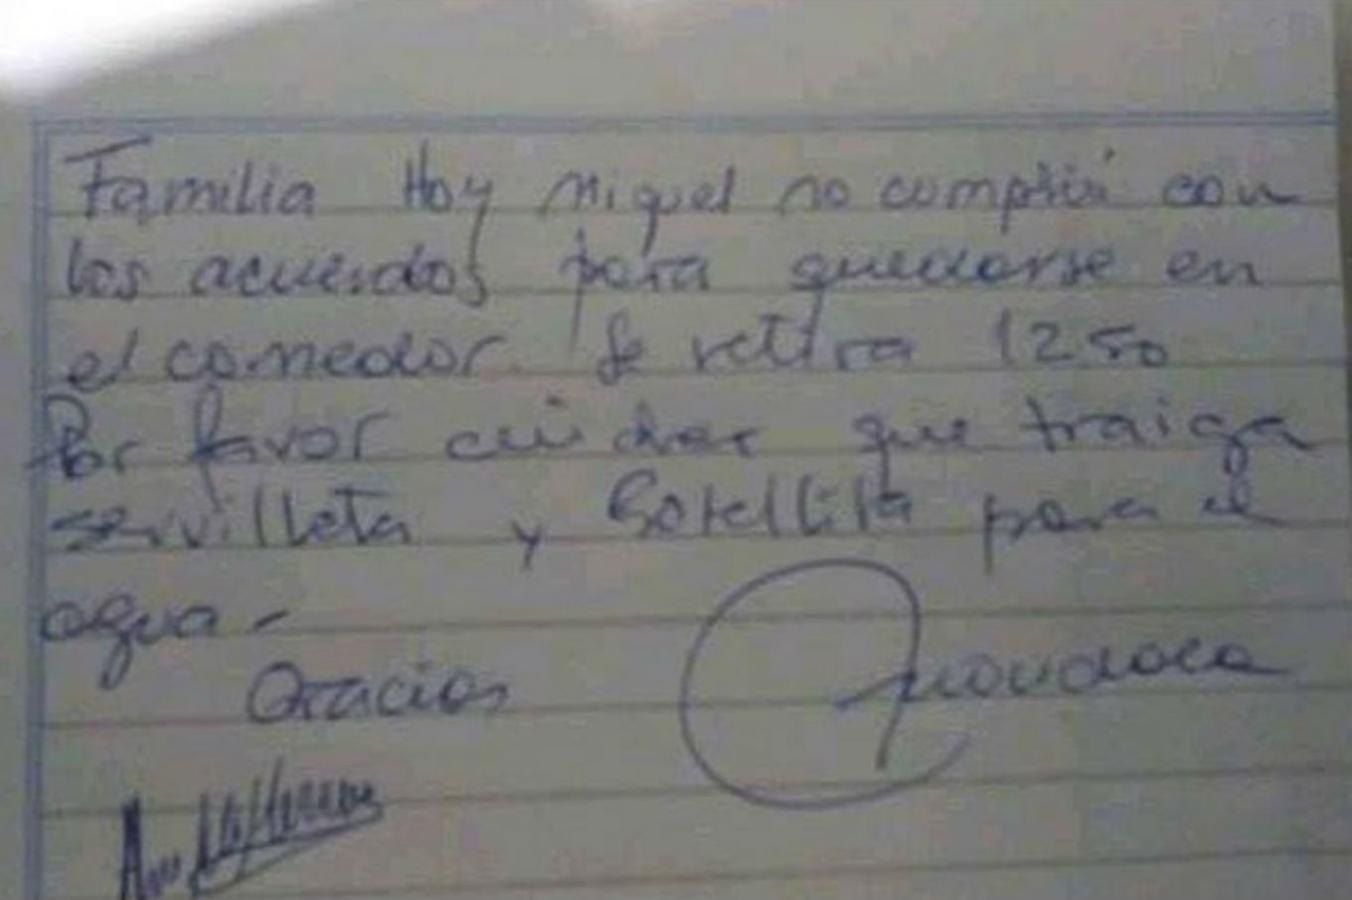 Familia Hoy Miguel no cumplió con
los acuerdos para quedarse en
el comedor. Se retira 1250
Por favor cuidar que traiga
servilleta y Botellita para el
agua -
Gracias